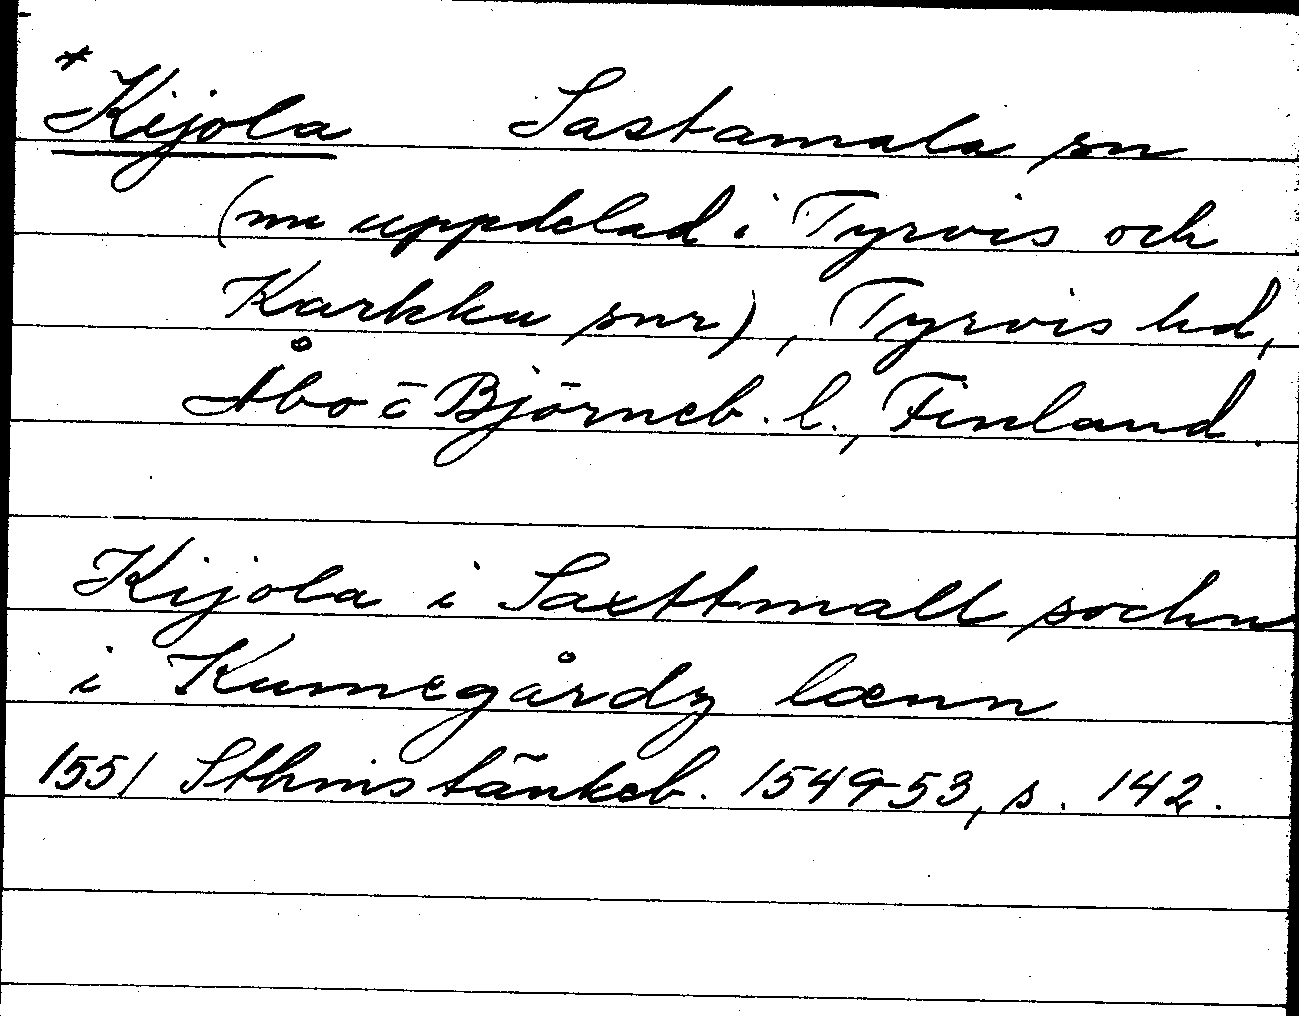 *Kijola Sastamala sn
(nu uppdelad i Tyrvis och
Karkku snr), Tyrvis hd,
Åbo o Björneb. l., Finland.
Kijola i Saxttmall sochnn
i Kumegårdz lænn
1551 Sthms tänkeb. 1549-53, s. 142.